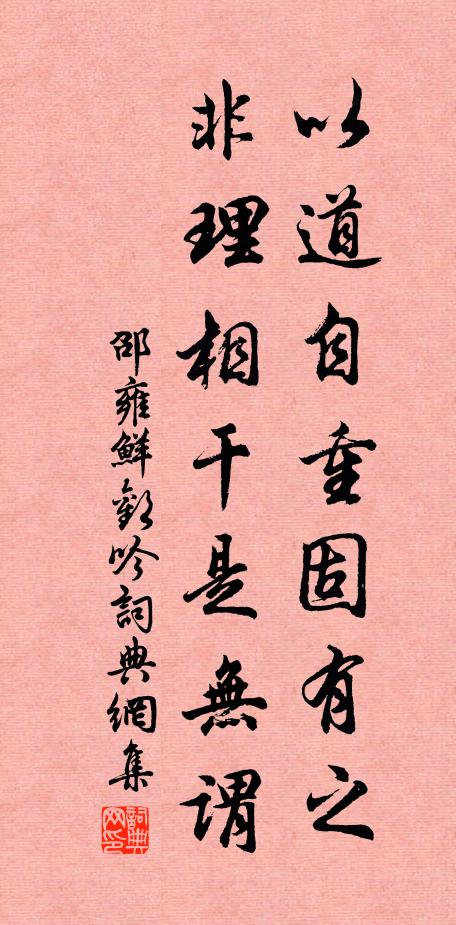 以道自重固有之
非理相干是無謂
邵雍鮮歡吟詞典網集
詞典
网印